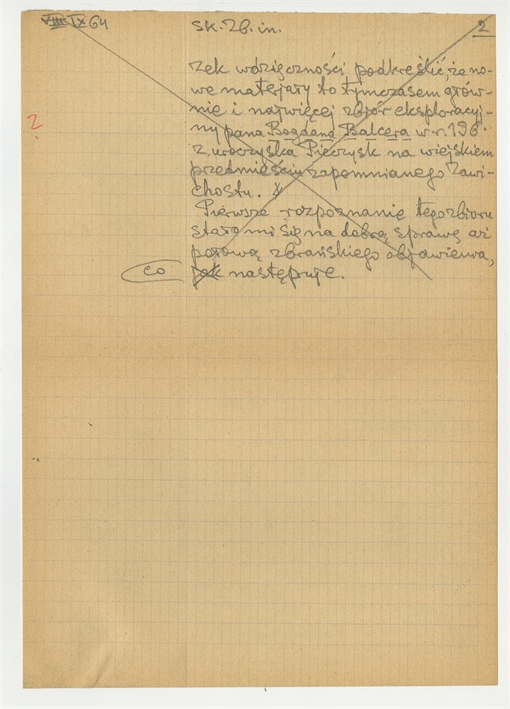 VIII IX 64
sk. zb. in.
2
zek wdzięczności podkreślić, że no-
we materjały to tymczasem głów-
nie i najwięcej zbiór eksploracyj-
ny pana Bogdana Balcera w r. 196
z uroczyska Pieczysk na wiejskiem
przedmieściu zapomnianego Zawi-
chostu.
Pierwsze rozpoznanie tego zbioru
stało mi się na dobrą sprawę aż
połową objawienia,
co
jak następuje.
?